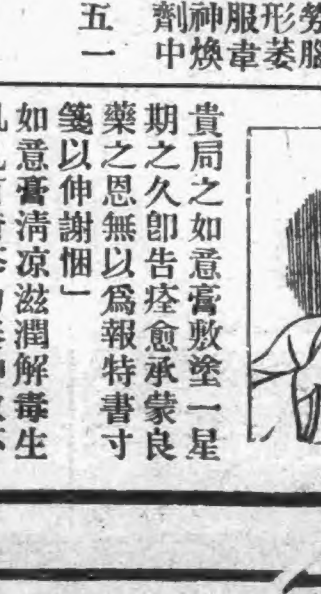 形萎
服韋
神煥
劑中
五一
貴局之如意膏敷塗一星
期之久卽告痊愈承蒙良
藥之恩無以爲報特書寸
箋以伸謝悃」
如意膏淸凉滋潤解毒生